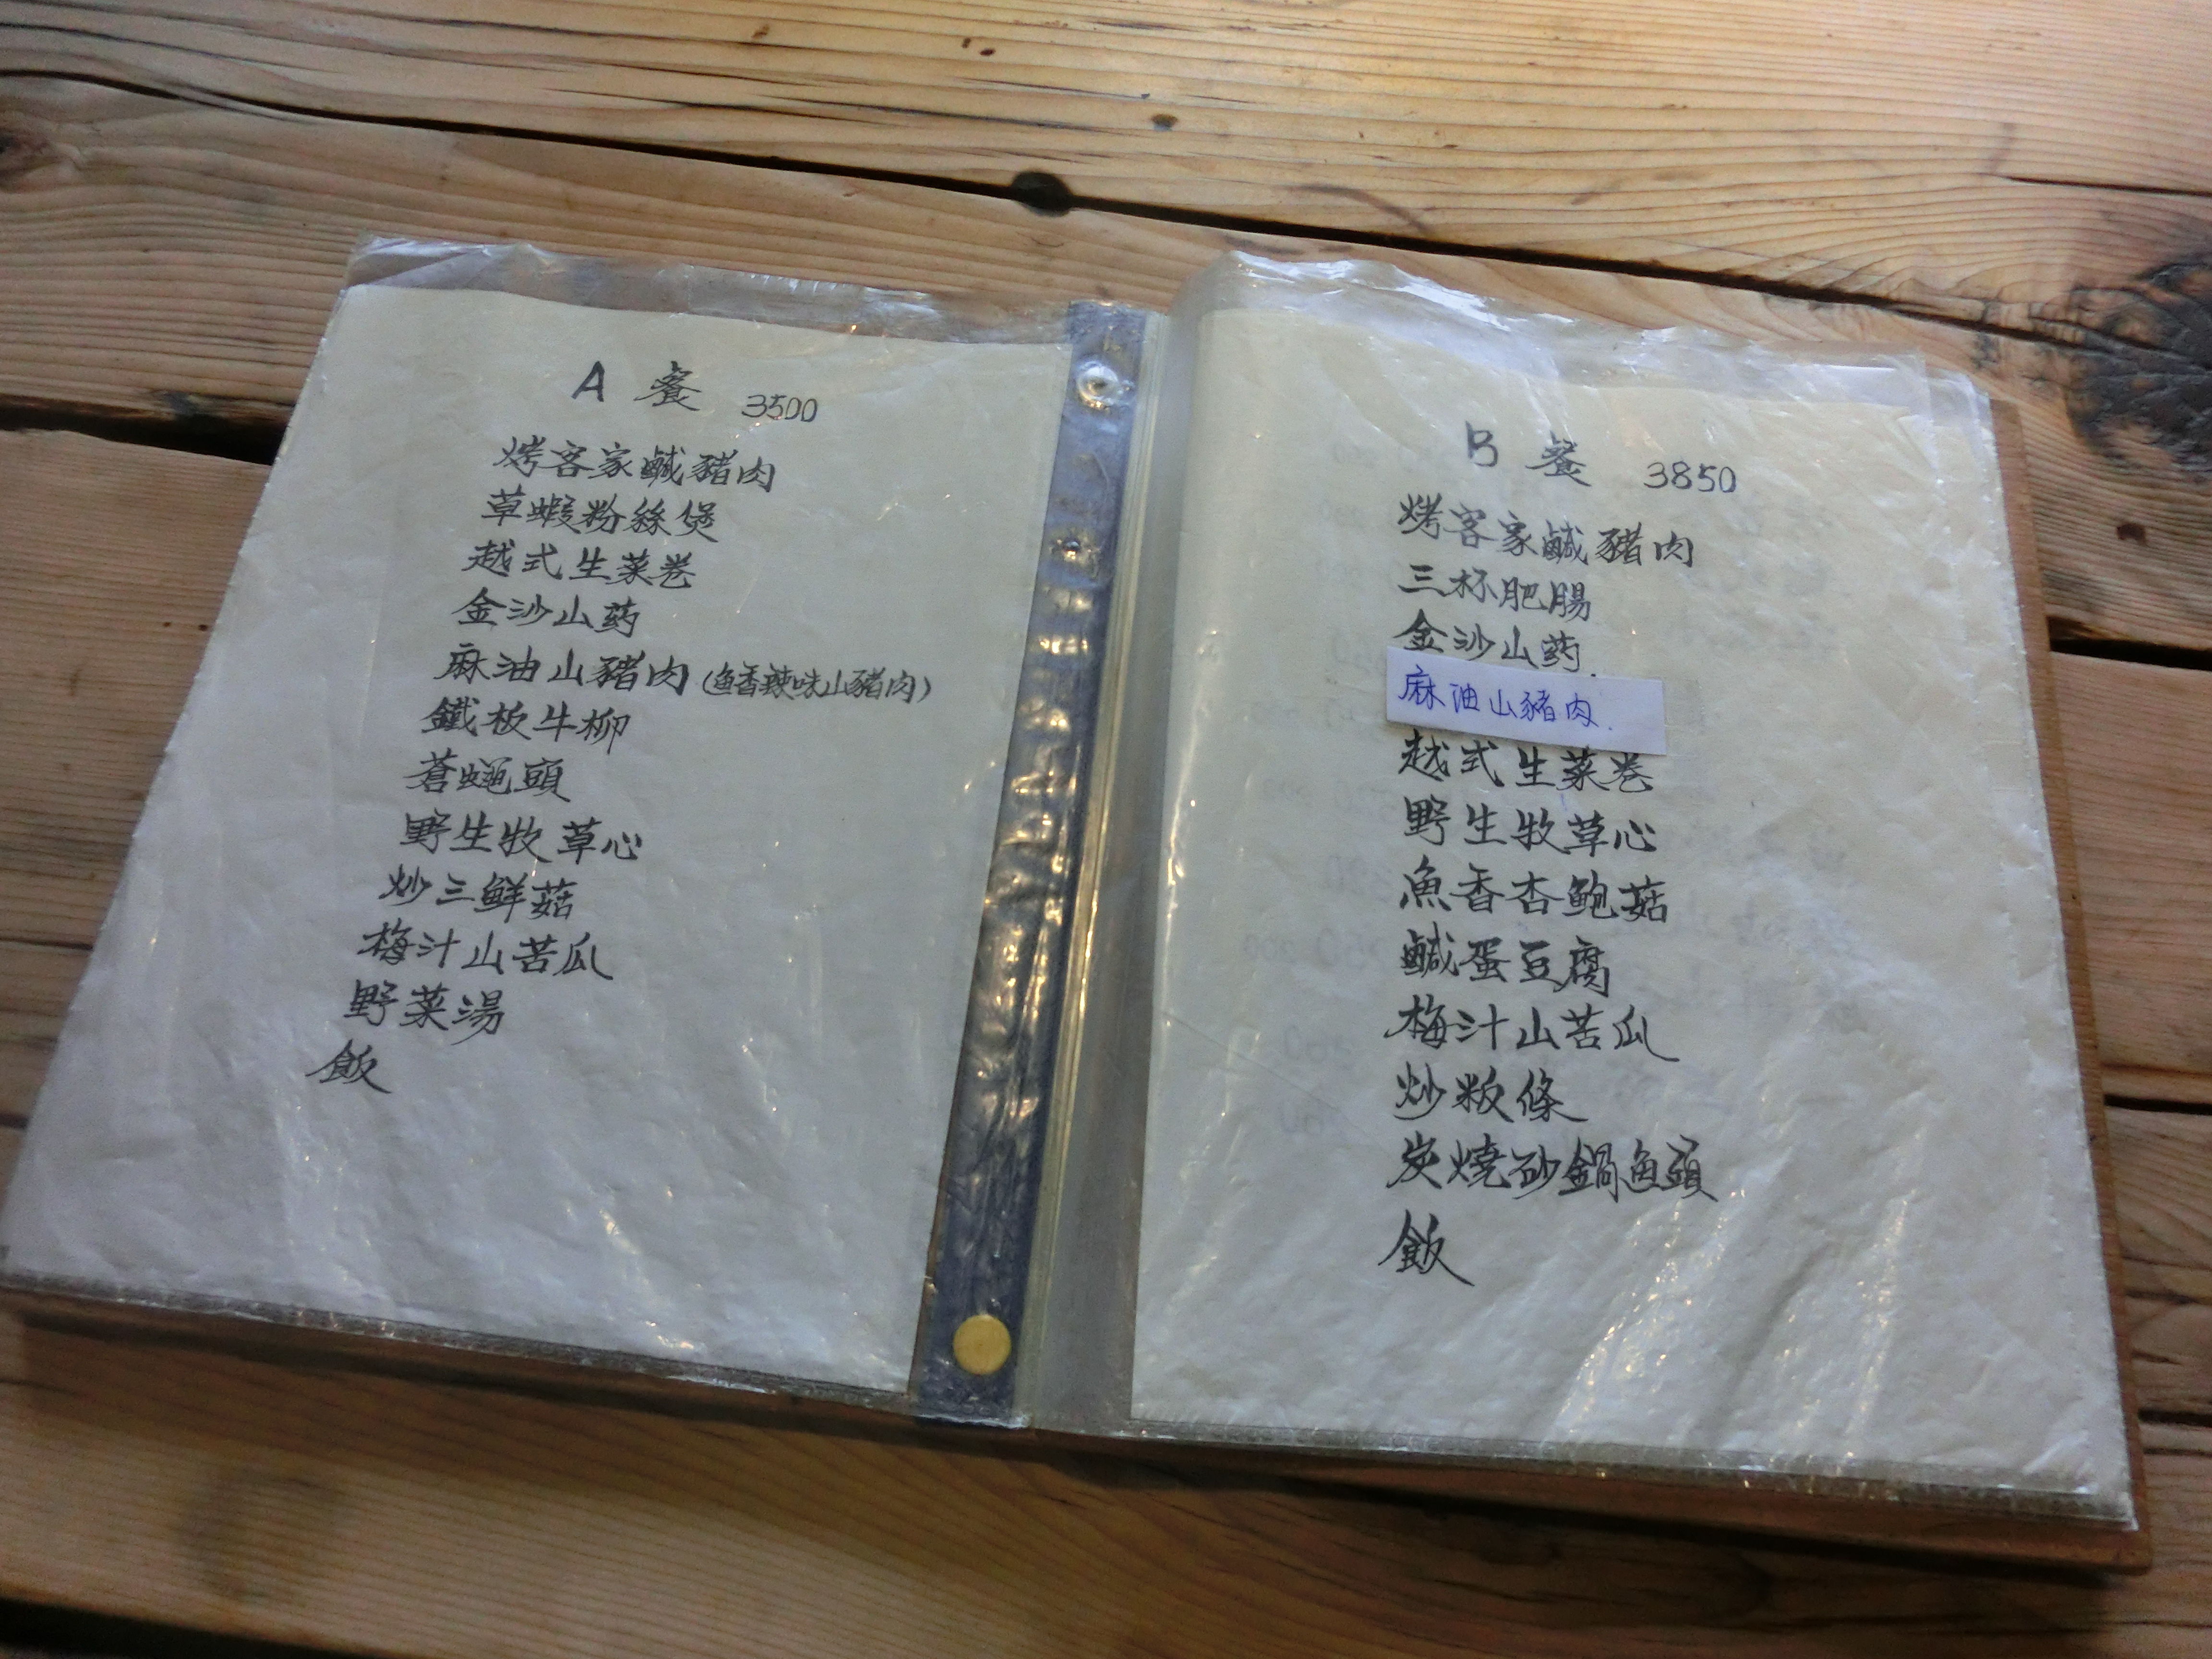 A 餐 3500
烤客家鹹豬肉
草蝦粉絲煲
越式生菜卷
金沙山药
麻油山豬肉(鱼香辣味山豬肉)
鐵板牛柳
蒼蠅頭
野生牧草心
炒三鮮菇
梅汁山苦瓜
野菜湯
飯
B 餐 3850
烤客家鹹豬肉
三杯肥腸
金沙山药
麻油山豬肉.
越式生菜卷
野生牧草心
魚香杏鲍菇
鹹蛋豆腐
梅汁山苦瓜
炒粄條
炭燒砂鍋鱼頭
飯